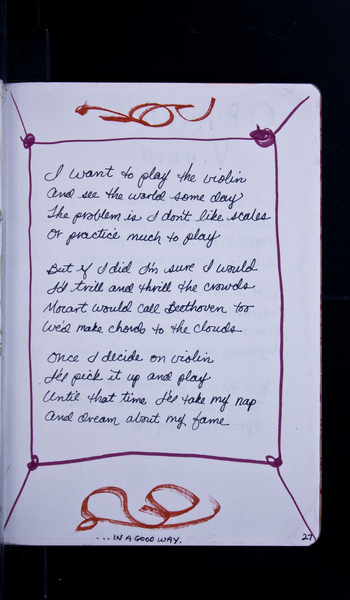 I want to play the violin
And see the world some day
The problem is I don't like scales
Or practice much to play
But if I did I'm sure I would
I'd trill and thrill the crowds
Mozart would call Beethoven too
We'd make chords to the clouds
Once I decide on violin
I'll pick it up and play
Until that time I'll take my nap
And dream about my fame
... IN A GOOD WAY.
27